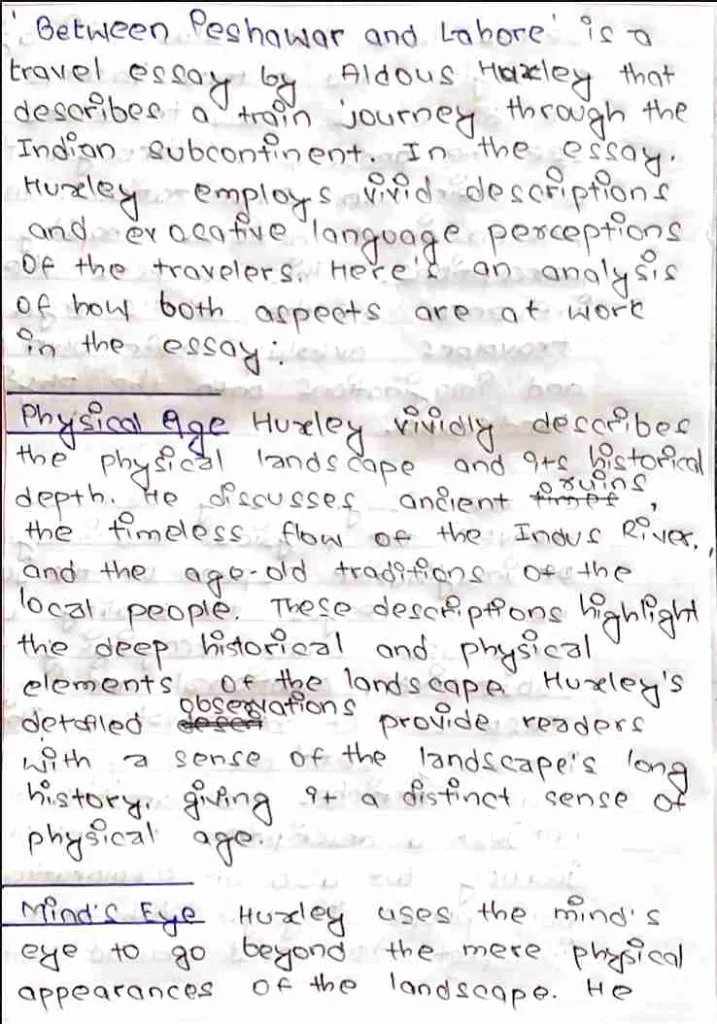 'Between Peshawar and Lahore' is a
travel essay by Aldous Huxley that
describes a train journey through the
Indian subcontinent. In the essay,
Huxley employs vivid descriptions
and evocative language perceptions
of the travelers. Here's an analysis
of how both aspects are at work
in the essay:
Physical Age Huxley vividly describes
the physical landscape and its historical
depth. He discusses ancient ruins,
the timeless flow of the Indus River,
and the age-old traditions of the
local people. These descriptions highlight
the deep historical and physical
elements of the landscape. Huxley's
detailed observations provide readers
with a sense of the landscape's long
history, giving it a distinct sense of
physical age.
Mind's Eye Huxley uses the mind's
eye to go beyond the mere physical
appearances of the landscape. He